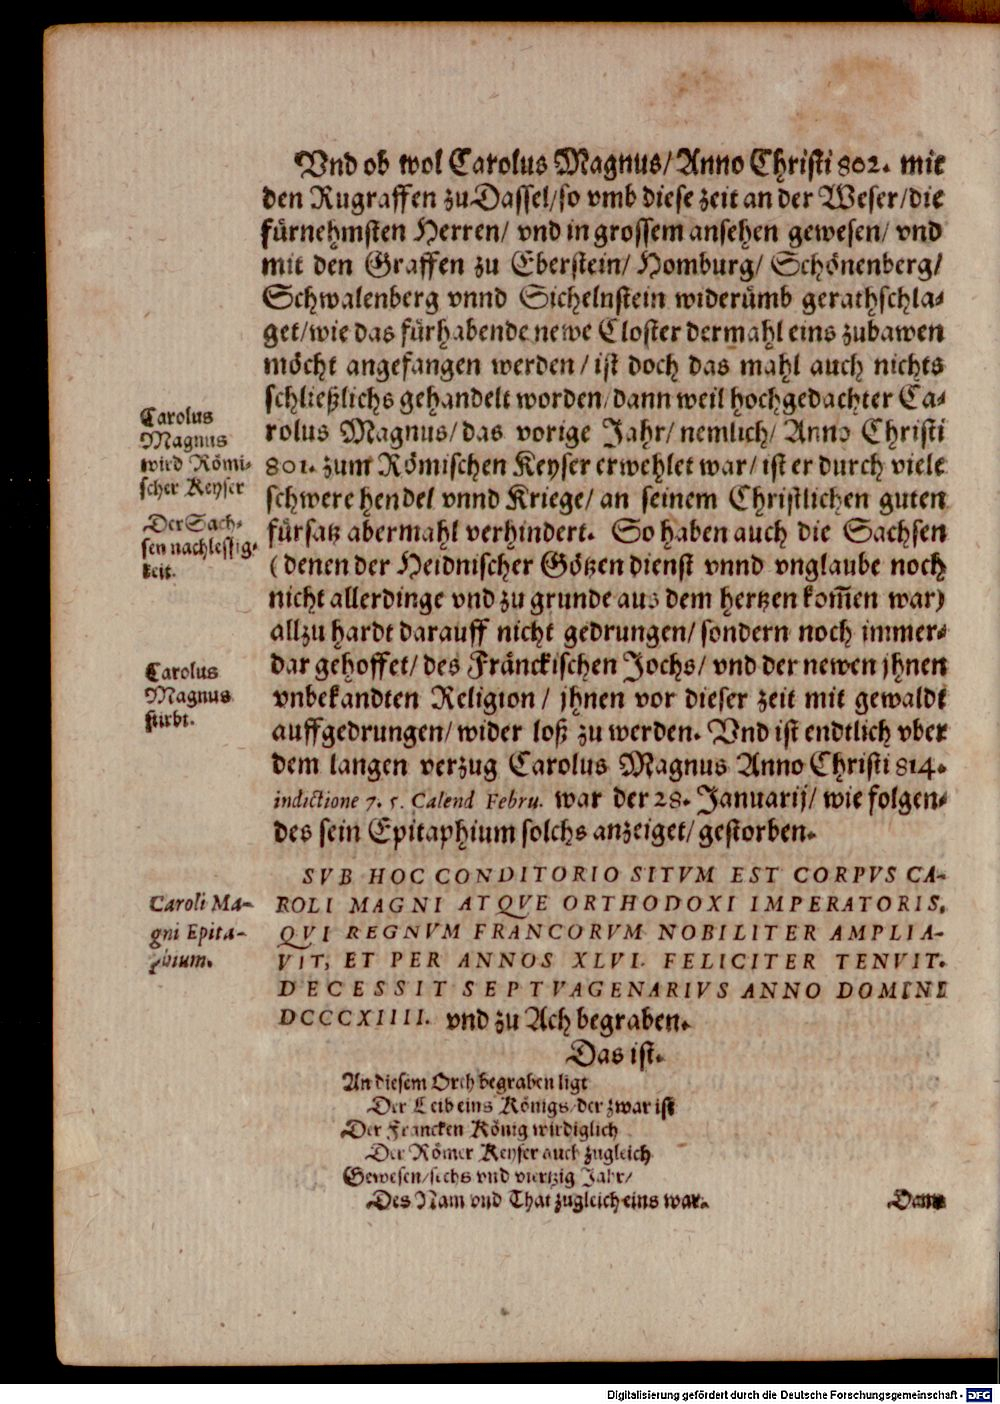 Vnd ob wol Carolus Magnus/ Anno Christi 802. mit
den Rugraffen zu Dassel/ so vmb diese zeit an der Weser/ die
fürnehmsten Herren/ vnd in grossem ansehen gewesen/ vnd
mit den Graffen zu Eberstein/ Homburg/ Schönenberg/
Schwalenberg vnnd Sichelnstein widerümb gerathschla-
get/ wie das fürhabende newe Closter dermahl eins zubawen
möcht angefangen werden/ ist doch das mahl auch nichts
schließlichs gehandelt worden/ dann weil hochgedachter Ca-
rolus Magnus/ das vorige Jahr/ nemlich/ Anno Christi
801. zum Römischen Keyser erwehlet war/ ist er durch viele
schwere hendel vnnd Kriege/ an seinem Christlichen guten
fürsatz abermahl verhindert. So haben auch die Sachsen
(denen der Heidnischer Götzen dienst vnnd vnglaube noch
nicht allerdinge vnd zu grunde aus dem hertzen kom̃en war)
allzu hardt darauff nicht gedrungen/ sondern noch immer-
dar gehoffet/ des Fränckischen Jochs/ vnd der newen jhnen
vnbekandten Religion/ jhnen vor dieser zeit mit gewaldt
auffgedrungen/ wider loß zu werden. Vnd ist endtlich vber
dem langen verzug Carolus Magnus Anno Christi 814.
indictione 7. 5. Calend Febru. war der 28. Januarij/ wie folgen-
des sein Epitaphium solchs anzeiget/ gestorben.
Carolus
Magnus
wird Römi-
scher Keyser
Der Sach-
sen nachlessig-
keit.
Carolus
Magnus
stirbt.
SVB HOC CONDITORIO SITVM EST CORPVS CA-
ROLI MAGNI ATQVE ORTHODOXI IMPERATORIS,
QVI REGNVM FRANCORVM NOBILITER AMPLIA-
VIT, ET PER ANNOS XLVI. FELICITER TENVIT.
DECESSIT SEPTVAGENARIVS ANNO DOMINI
DCCCXIIII. vnd zu Ach begraben.
Caroli Ma-
gni Epita-
phium.
Das ist.
An diesem Orth begraben ligt
Der Leib eins Königs/ der zwar ist
Der Francken König wirdiglich
Der Römer Keyser auch zugleich
Gewesen/ sechs vnd viertzig Jahr/
Des Nam vnd That zugleich eins war.
Dann
Digitalisierung gefördert durch die Deutsche Forschungsgemeinschaft - DFG